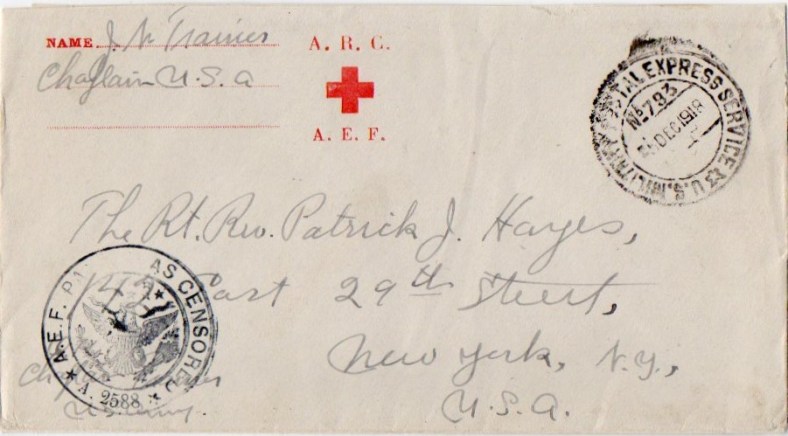 NAME. J. N. Trainer
Chaplain U.S.A
A. R. C.
A. E. F.
U.S. MILITARY POSTAL EXPRESS SERVICE
No 793
DEC 1918
The Rt. Rev. Patrick J. Hayes,
142 East 29th Street,
New York, N.Y.,
U.S.A.
A.E.F. AS CENSORED
A. 2588
U.S. Army.